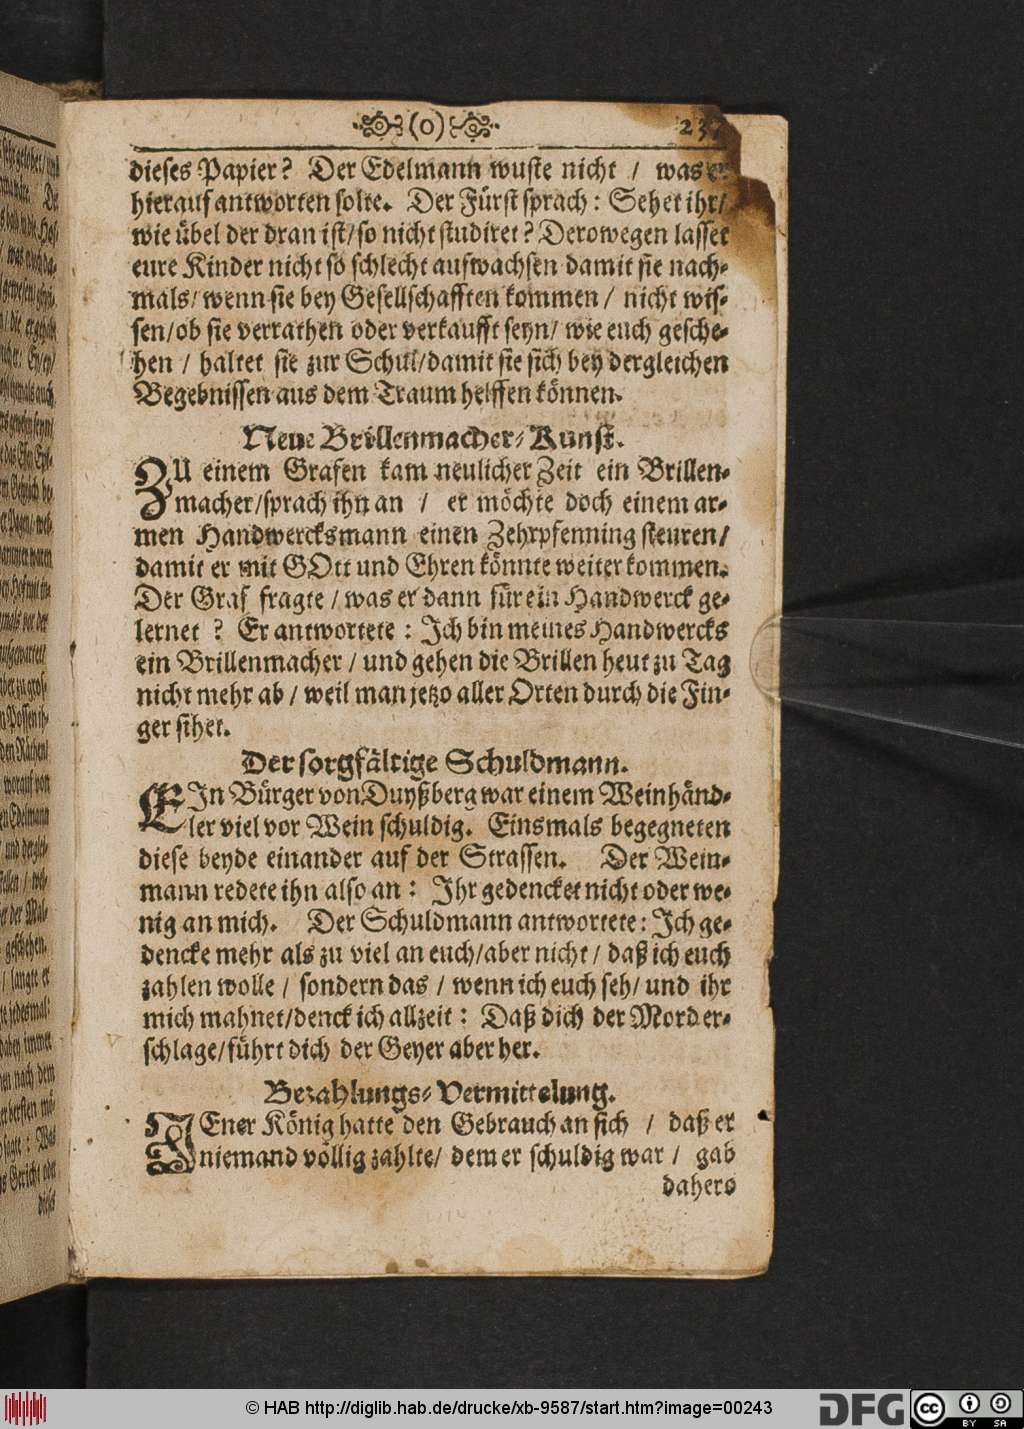 (o) 237
dieses Papier? Der Edelmann wuste nicht / was er
hierauf antworten solte. Der Fürst sprach: Sehet ihr/
wie übel der dran ist/ so nicht studiret? Derowegen lasset
eure Kinder nicht so schlecht aufwachsen damit sie nach-
mals/ wenn sie bey Gesellschafften kommen / nicht wis-
sen/ ob sie verrathen oder verkaufft seyn/ wie euch gesche-
hen / haltet sie zur Schul/ damit sie sich bey dergleichen
Begebnissen aus dem Traum helffen können.
Neue Brillenmacher-Kunst.
ZU einem Grafen kam neulicher Zeit ein Brillen-
macher/ sprach ihn an / er möchte doch einem ar-
men Handwercksmann einen Zehrpfenning steuren/
damit er mit GOtt und Ehren könnte weiter kommen.
Der Graf fragte / was er dann für ein Handwerck ge-
lernet ? Er antwortete: Ich bin meines Handwercks
ein Brillenmacher / und gehen die Brillen heut zu Tag
nicht mehr ab / weil man jetzo aller Orten durch die Fin-
ger sihet.
Der sorgfältige Schuldmann.
EIn Bürger von Duyßberg war einem Weinhänd-
ler viel vor Wein schuldig. Einsmals begegneten
diese beyde einander auf der Strassen. Der Wein-
mann redete ihn also an: Ihr gedencket nicht oder we-
nig an mich. Der Schuldmann antwortete: Ich ge-
dencke mehr als zu viel an euch/ aber nicht / daß ich euch
zahlen wolle / sondern das / wenn ich euch seh/ und ihr
mich mahnet/ denck ich allzeit: Daß dich der Mord er-
schlage/ führt dich der Geyer aber her.
Bezahlungs-Vermittelung.
JEner König hatte den Gebrauch an sich / daß er
niemand völlig zahlte/ dem er schuldig war / gab
dahero
© HAB http://diglib.hab.de/drucke/xb-9587/start.htm?image=00243
DFG
cc BY SA